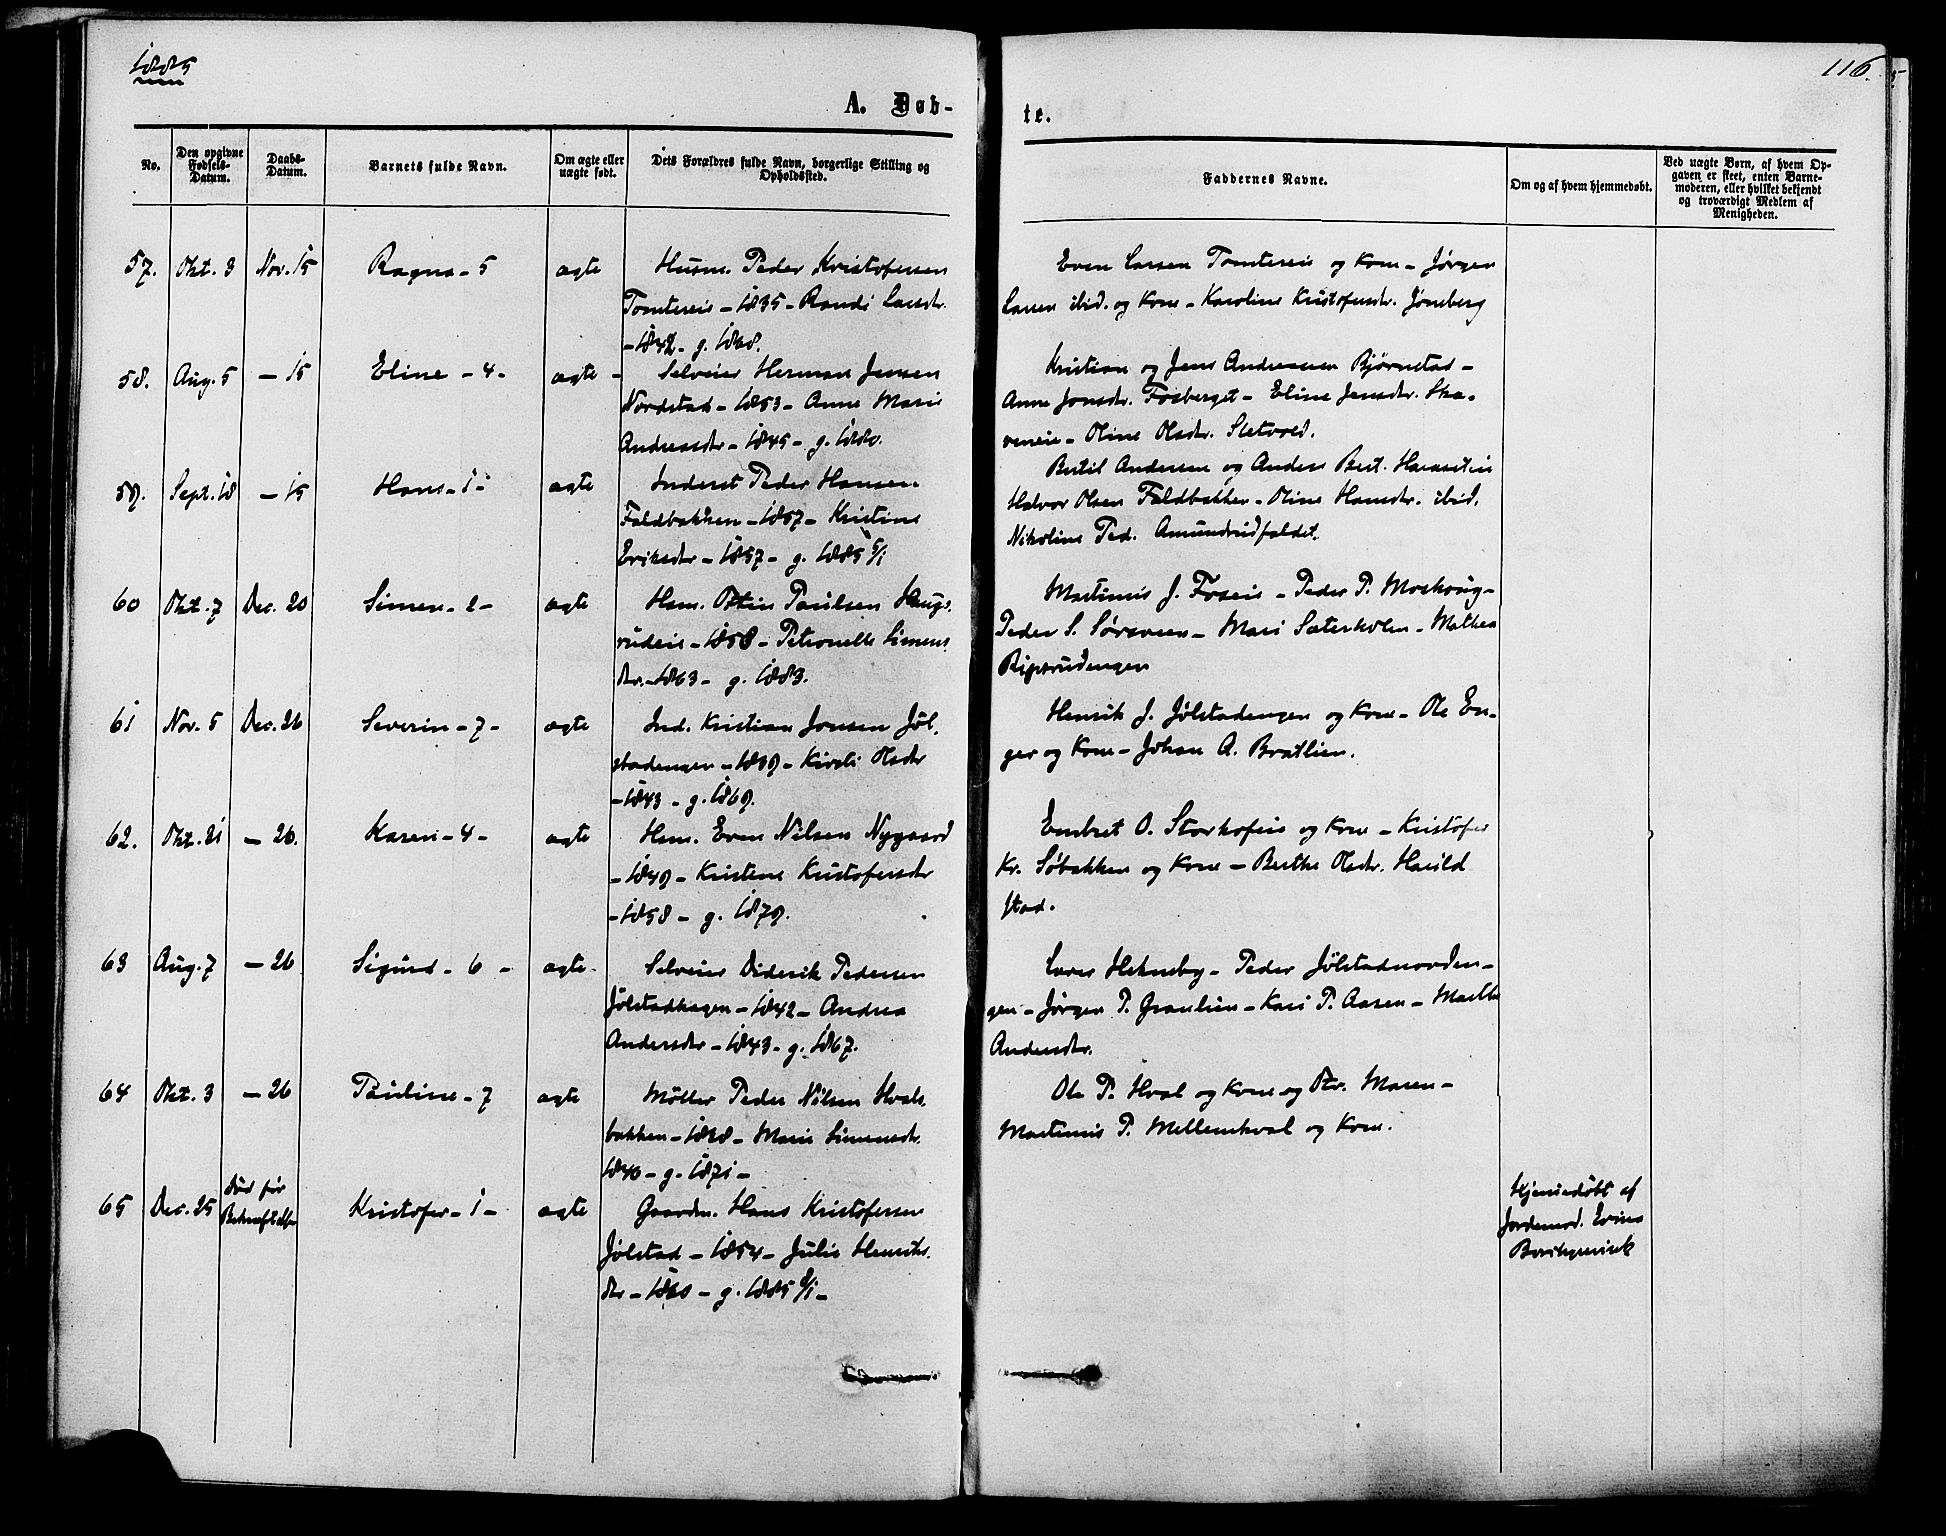 1885
116.
A. Døb-
te.
No.
Den opgivne Fødsels-Datum.
Daabs-Datum.
Barnets fulde Navn.
Om ægte eller uægte født.
Dets Forældres fulde Navn, borgerlige Stilling og Opholdssted.
Faddernes Navne.
Om og af hvem hjemmedøbt.
Ved uægte Børn, af hvem Op-
gaven er skeet, enten Barne-
moderen, eller hvilket bekjendt
og troværdigt Medlem af
Menigheden.
57. Okt. 3 Nov. 15 Ragna - 5 ægte Husm. Peder Kristofersen
Tomtereie - 1835 - Randi Larsdr.
- 1842 - g. 1868.
Even Larsen Tomtereie og Kone - Jørgen
Larsen ibid. og Kone - Karoline Kristofersdr. Jøneberg
58. Aug. 5 - 15 Eline - 4 - ægte - Selveier Herman Jensen
Nordstad - 1853 - Anne Marie
Andreasdr - 1845 - g. 1880.
Kristian og Jens Andreasen Bjørnstad -
Anne Jonsdr. Fosberget - Eline Jensdr. Ska-
veneie - Oline Olsdr. Sletvold.
59. Sept. 18 - 15 Hans - 1 - ægte Inderst Peder Hansen
Faldbakken - 1857 - Kristine
Eriksdr - 1857 - g. 1885 5/1
Bertil Andersen og Anders Bert.
Halvor Olsen Faldbakken - Oline Hansdr. ibid.
Nikoline Ped. Amundrudfaldet.
60 Okt. 7 Dec. 20 Simen - 2 - ægte Husm. Ottin Paulsen Haugs-
rudeie - 1858 - Petronelle Simens
dr. - 1863 - g. 1883.
Martinus J. Foseie - Peder P. Moshoug -
Peder S. Sørsveen - Mari Sæterholen - Mathea
Ripsrudengen
61 Nov. 5 Dec. 26 Severin - 7 - ægte Ind. Kristian Jonsen Jøl-
stadengen - 1839 - Kirsti Olsdr
- 1843 - g. 1869.
Henrik J. Jølstadengen og Kone - Ole En-
ger og Kone - Johan A. Bratlien.
62. Okt. 21 - 26. Karen - 4 - ægte Husm. Even Nilsen Nygaard
- 1849 - Kristine Kristofersdr
- 1858 - g. 1879.
Embret O. Storhofeie og Kone - Kristofer
Kr. Søbakken og Kone - Berthe Olsdr. Harild
stad.
63 Aug. 7 - 26 Sigurd - 6 - ægte. Selveier Diderik Pedersen
Jølstadhagen - 1842 - Andrea
Andersdr - 1843 - g. 1867.
Lars Hekneby - Peder Jølstadnorden-
gen - Jørgen P. Graulien - Kari P. Aasen - Marthe
Andersdr.
64 Okt. 3 - 26 Pauline - 7 ægte Møller Peder Nilsen Hvals
bakken - 1838 - Marie Simensdr.
1840 - g. 1871 -
Ole P. Hval og Kone og Dtr. Maren -
Martinus P. Mellemhval og Kone.
65 Dec. 25 Død før
Bekræftelsen Kristofer - 1 - ægte Gaardm. Hans Kristofersen
Jølstad - 1854 - Julie Henriks.
dr - 1860 - g. 1885 8/1 -
Hjemmedøbt af
Jordemod. Evine